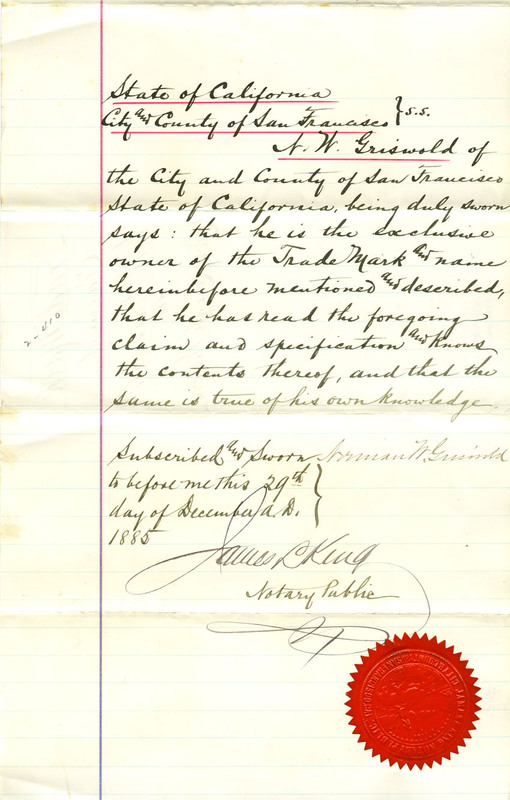 State of California
City and County of San Francisco } S.S.
N. W. Griswold of
the City and County of San Francisco
State of California, being duly sworn
says: that he is the exclusive
owner of the Trade Mark and name
hereinbefore mentioned and described,
that he has read the foregoing
claim and specification and knows
the contents thereof, and that the
same is true of his own knowledge.
Subscribed and Sworn Norman W. Griswold
to before me this 29th
day of December A.D.
1885
James L King
Notary Public